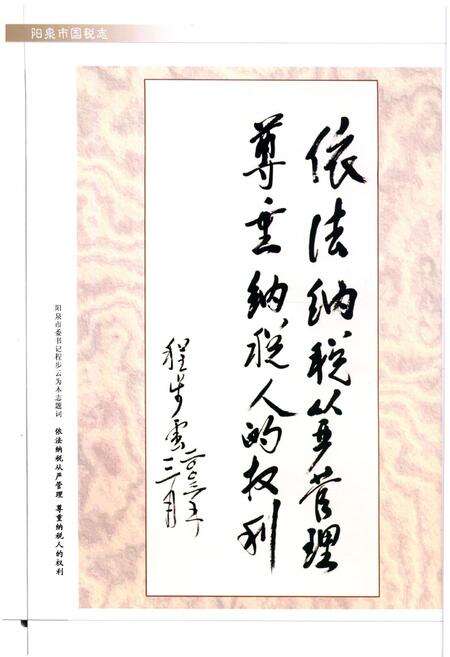 阳泉市国税志
依法纳税从严管理
尊重纳税人的权利
程步云
二〇〇三年
三月
阳泉市委书记程步云为本志题词 依法纳税从严管理 尊重纳税人的权利